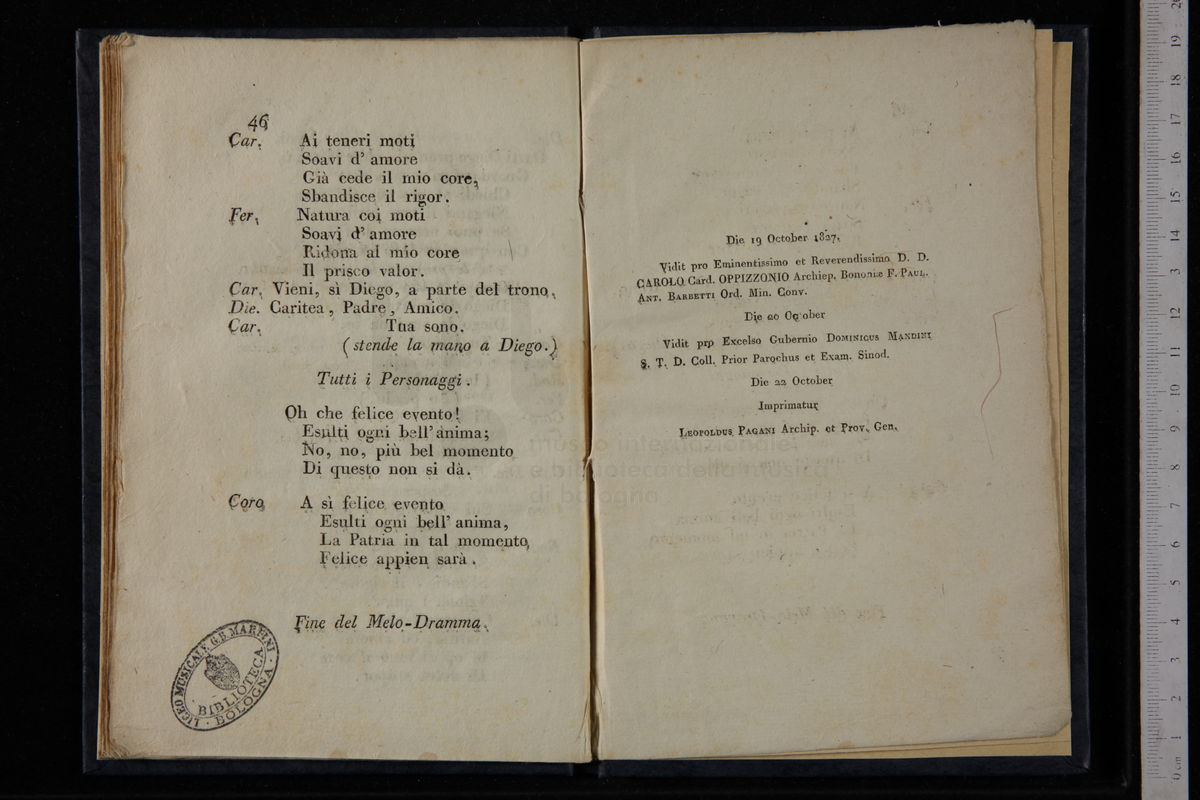 46
Car. Ai teneri moti
Soavi d' amore
Già cede il mio core,
Sbandisce il rigor.
Fer. Natura coi moti
Soavi d' amore
Ridona al mio core
Il prisco valor.
Car. Vieni, sì Diego, a parte del trono.
Die. Caritea, Padre, Amico.
Car. Tua sono.
(stende la mano a Diego.)
Tutti i Personaggi.
Oh che felice evento!
Esulti ogni bell' anima;
No, no, più bel momento
Di questo non si dà.
Coro A sì felice evento
Esulti ogni bell' anima,
La Patria in tal momento,
Felice appien sarà.
Fine del Melo-Dramma.
LICEO MUSICALE G.B. MARTINI
BIBLIOTECA
BOLOGNA
Die 19 October 1827.
Vidit pro Eminentissimo et Reverendissimo D. D.
CAROLO Card. OPPIZZONIO Archiep. Bononiæ F. PAUL.
ANT. BARBETTI Ord. Min. Conv.
Die 20 October
Vidit pro Excelso Gubernio DOMINICUS MANDINI
S. T. D. Coll. Prior Parochus et Exam. Sinod.
Die 22 October
Imprimatur
LEOPOLDUS PAGANI Archip. et Prov. Gen.
museo internazionale
e biblioteca della musica
di bologna
0 cm 1 2 3 4 5 6 7 8 9 10 11 12 13 14 15 16 17 18 19 20